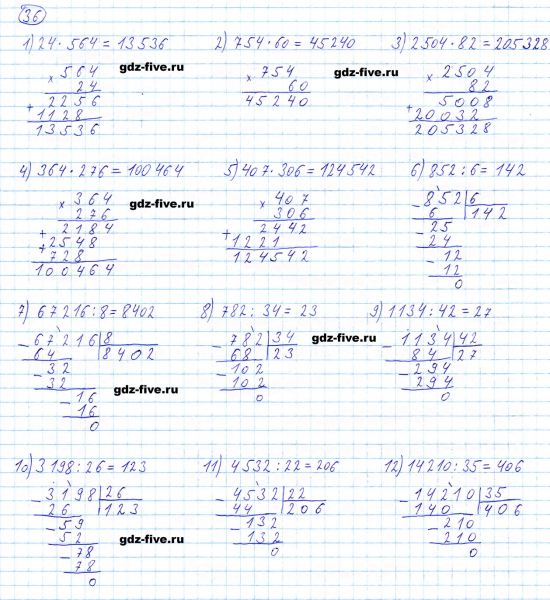 36
1) 24 · 564 = 13536 2) 754 · 60 = 45240 3) 2504 · 82 = 205328
gdz-five.ru gdz-five.ru
× 564 × 754 × 2504
24 60 82
+ 2256 45240 + 5008
1128 20032
13536 205328
4) 364 · 276 = 100464 5) 407 · 306 = 124542 6) 852 : 6 = 142
gdz-five.ru
× 364 × 407 - 852 6
276 306 6 142
+ 2184 + 2442 - 25
+ 2548 1221 24
728 124542 - 12
100464 12
0
7) 67216 : 8 = 8402 8) 782 : 34 = 23 9) 1134 : 42 = 27
- 67216 8 - 782 34 - 1134 42
64 8402 68 23 84 27
gdz-five.ru
- 32 - 102 - 294
32 102 294
gdz-five.ru
- 16 0 0
16
0
10) 3198 : 26 = 123 11) 4532 : 22 = 206 12) 14210 : 35 = 406
- 3198 26 - 4532 22 - 14210 35
26 123 44 206 140 406
- 59 - 132 - 210
52 132 210
gdz-five.ru gdz-five.ru
- 78 0 0
78
0